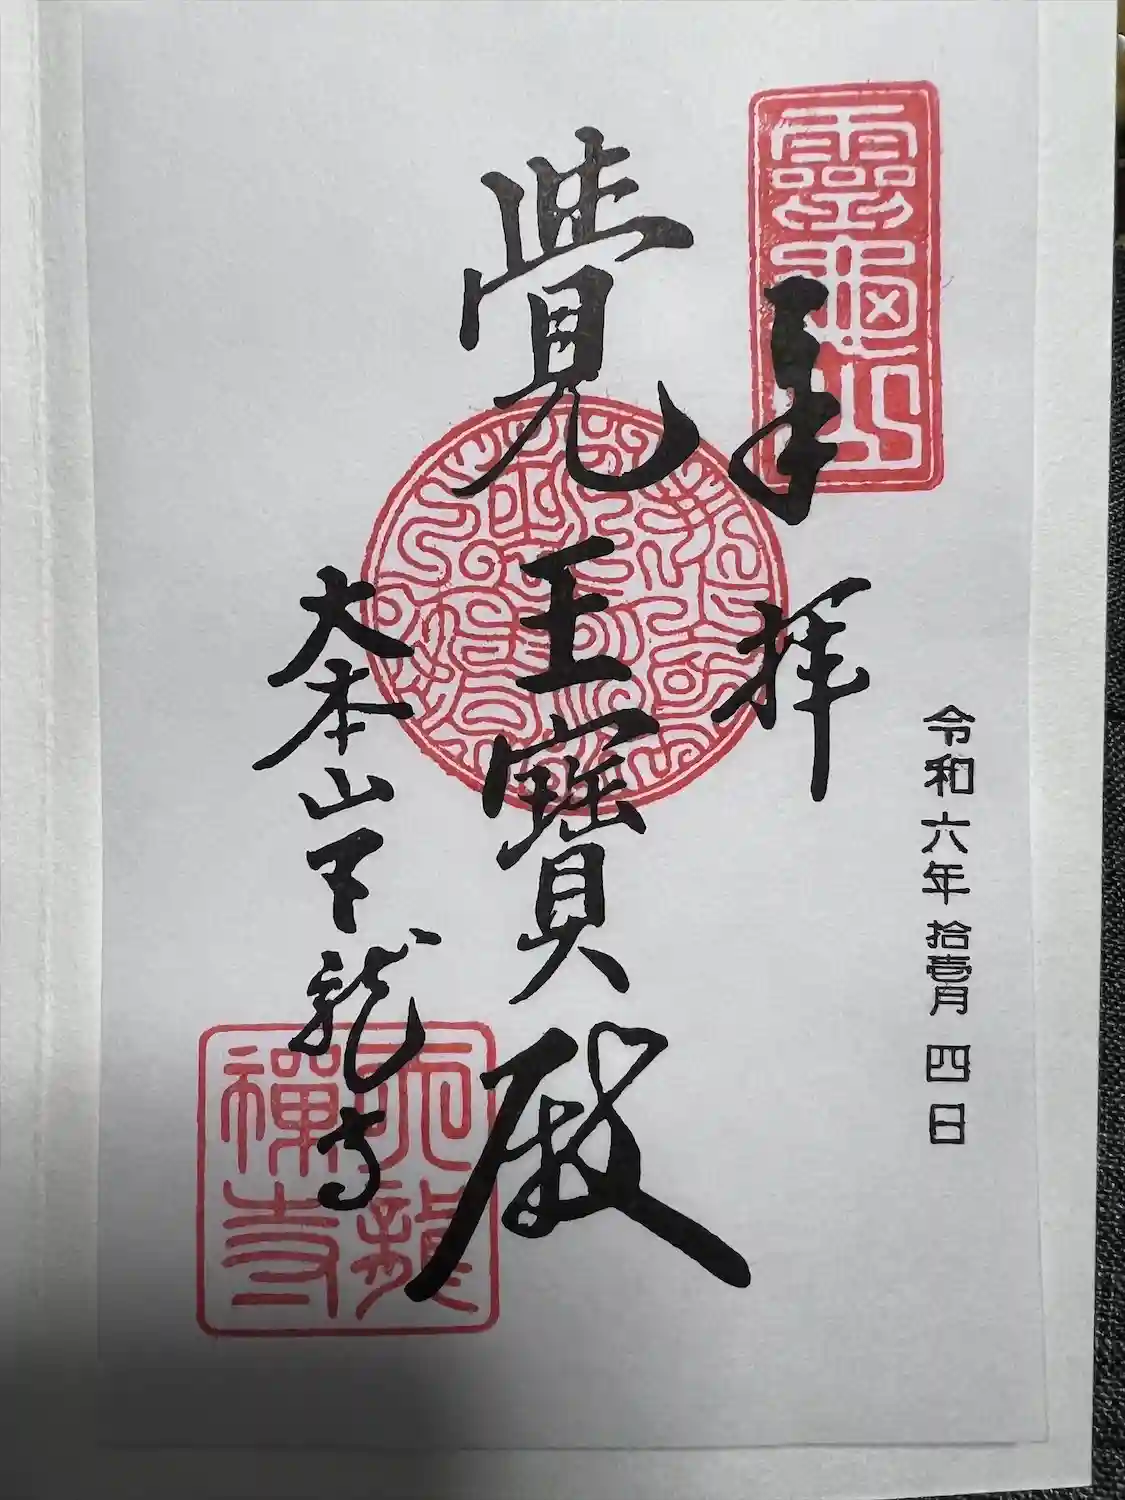 令和六年拾壹月四日
靈龜山
奉拝
覺王寶殿
大本山天龍寺
天龍禪寺